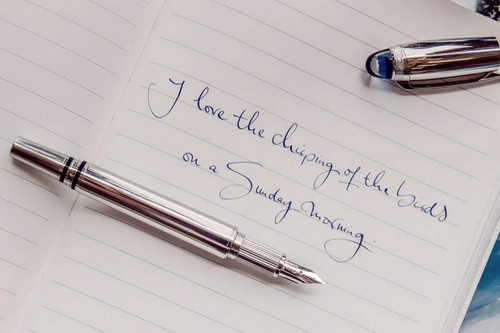 I love the chirping of the birds
on a Sunday morning.